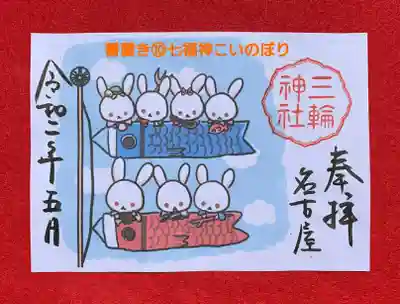 書置き⑩七福神こいのぼり
三輪
神社
奉拝
名古屋
令和二年五月